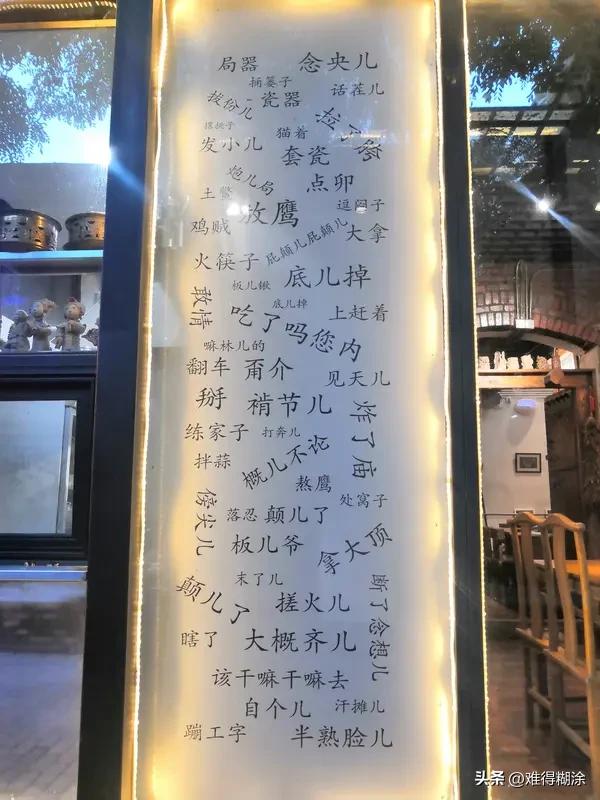 局器 念央儿
捅篓子 话茬儿
拔份儿 瓷器
摆挑子 猫着
发小儿 套瓷
炮儿局 点卯
土鳖 放鹰 逗闷子
鸡贼 屁颠儿屁颠儿 大拿
火筷子 底儿掉
板儿锹
敢情 底儿掉 上赶着
吃了吗您内
嘛林儿的
翻车 甭介 见天儿
掰 褃节儿 炸了庙
练家子 打奔儿
拌蒜 概儿不论
熬鹰 处窝子
傍尖儿 落忍 颠儿了
板儿爷 拿大顶
末了儿
颠儿了 搓火儿 断了念想儿
瞎了 大概齐儿
该干嘛干嘛去
自个儿 汗摊儿
蹦工字 半熟脸儿
头条 @难得糊涂